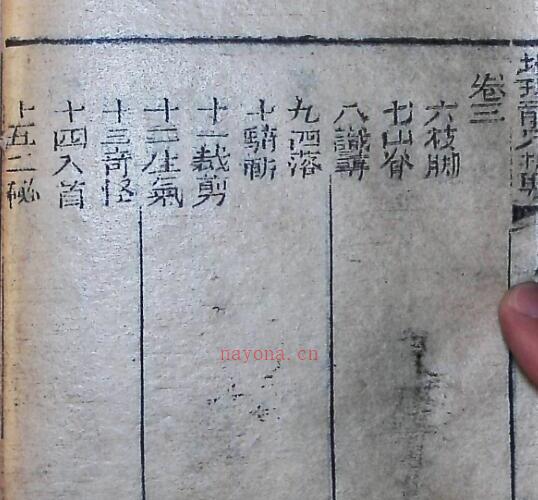 卷三
六枝脚
七山脊
八識
九
十騎斬
十一裁剪
十二生氣
十三奇怪
十四入首
十五二秘
nayona.cn